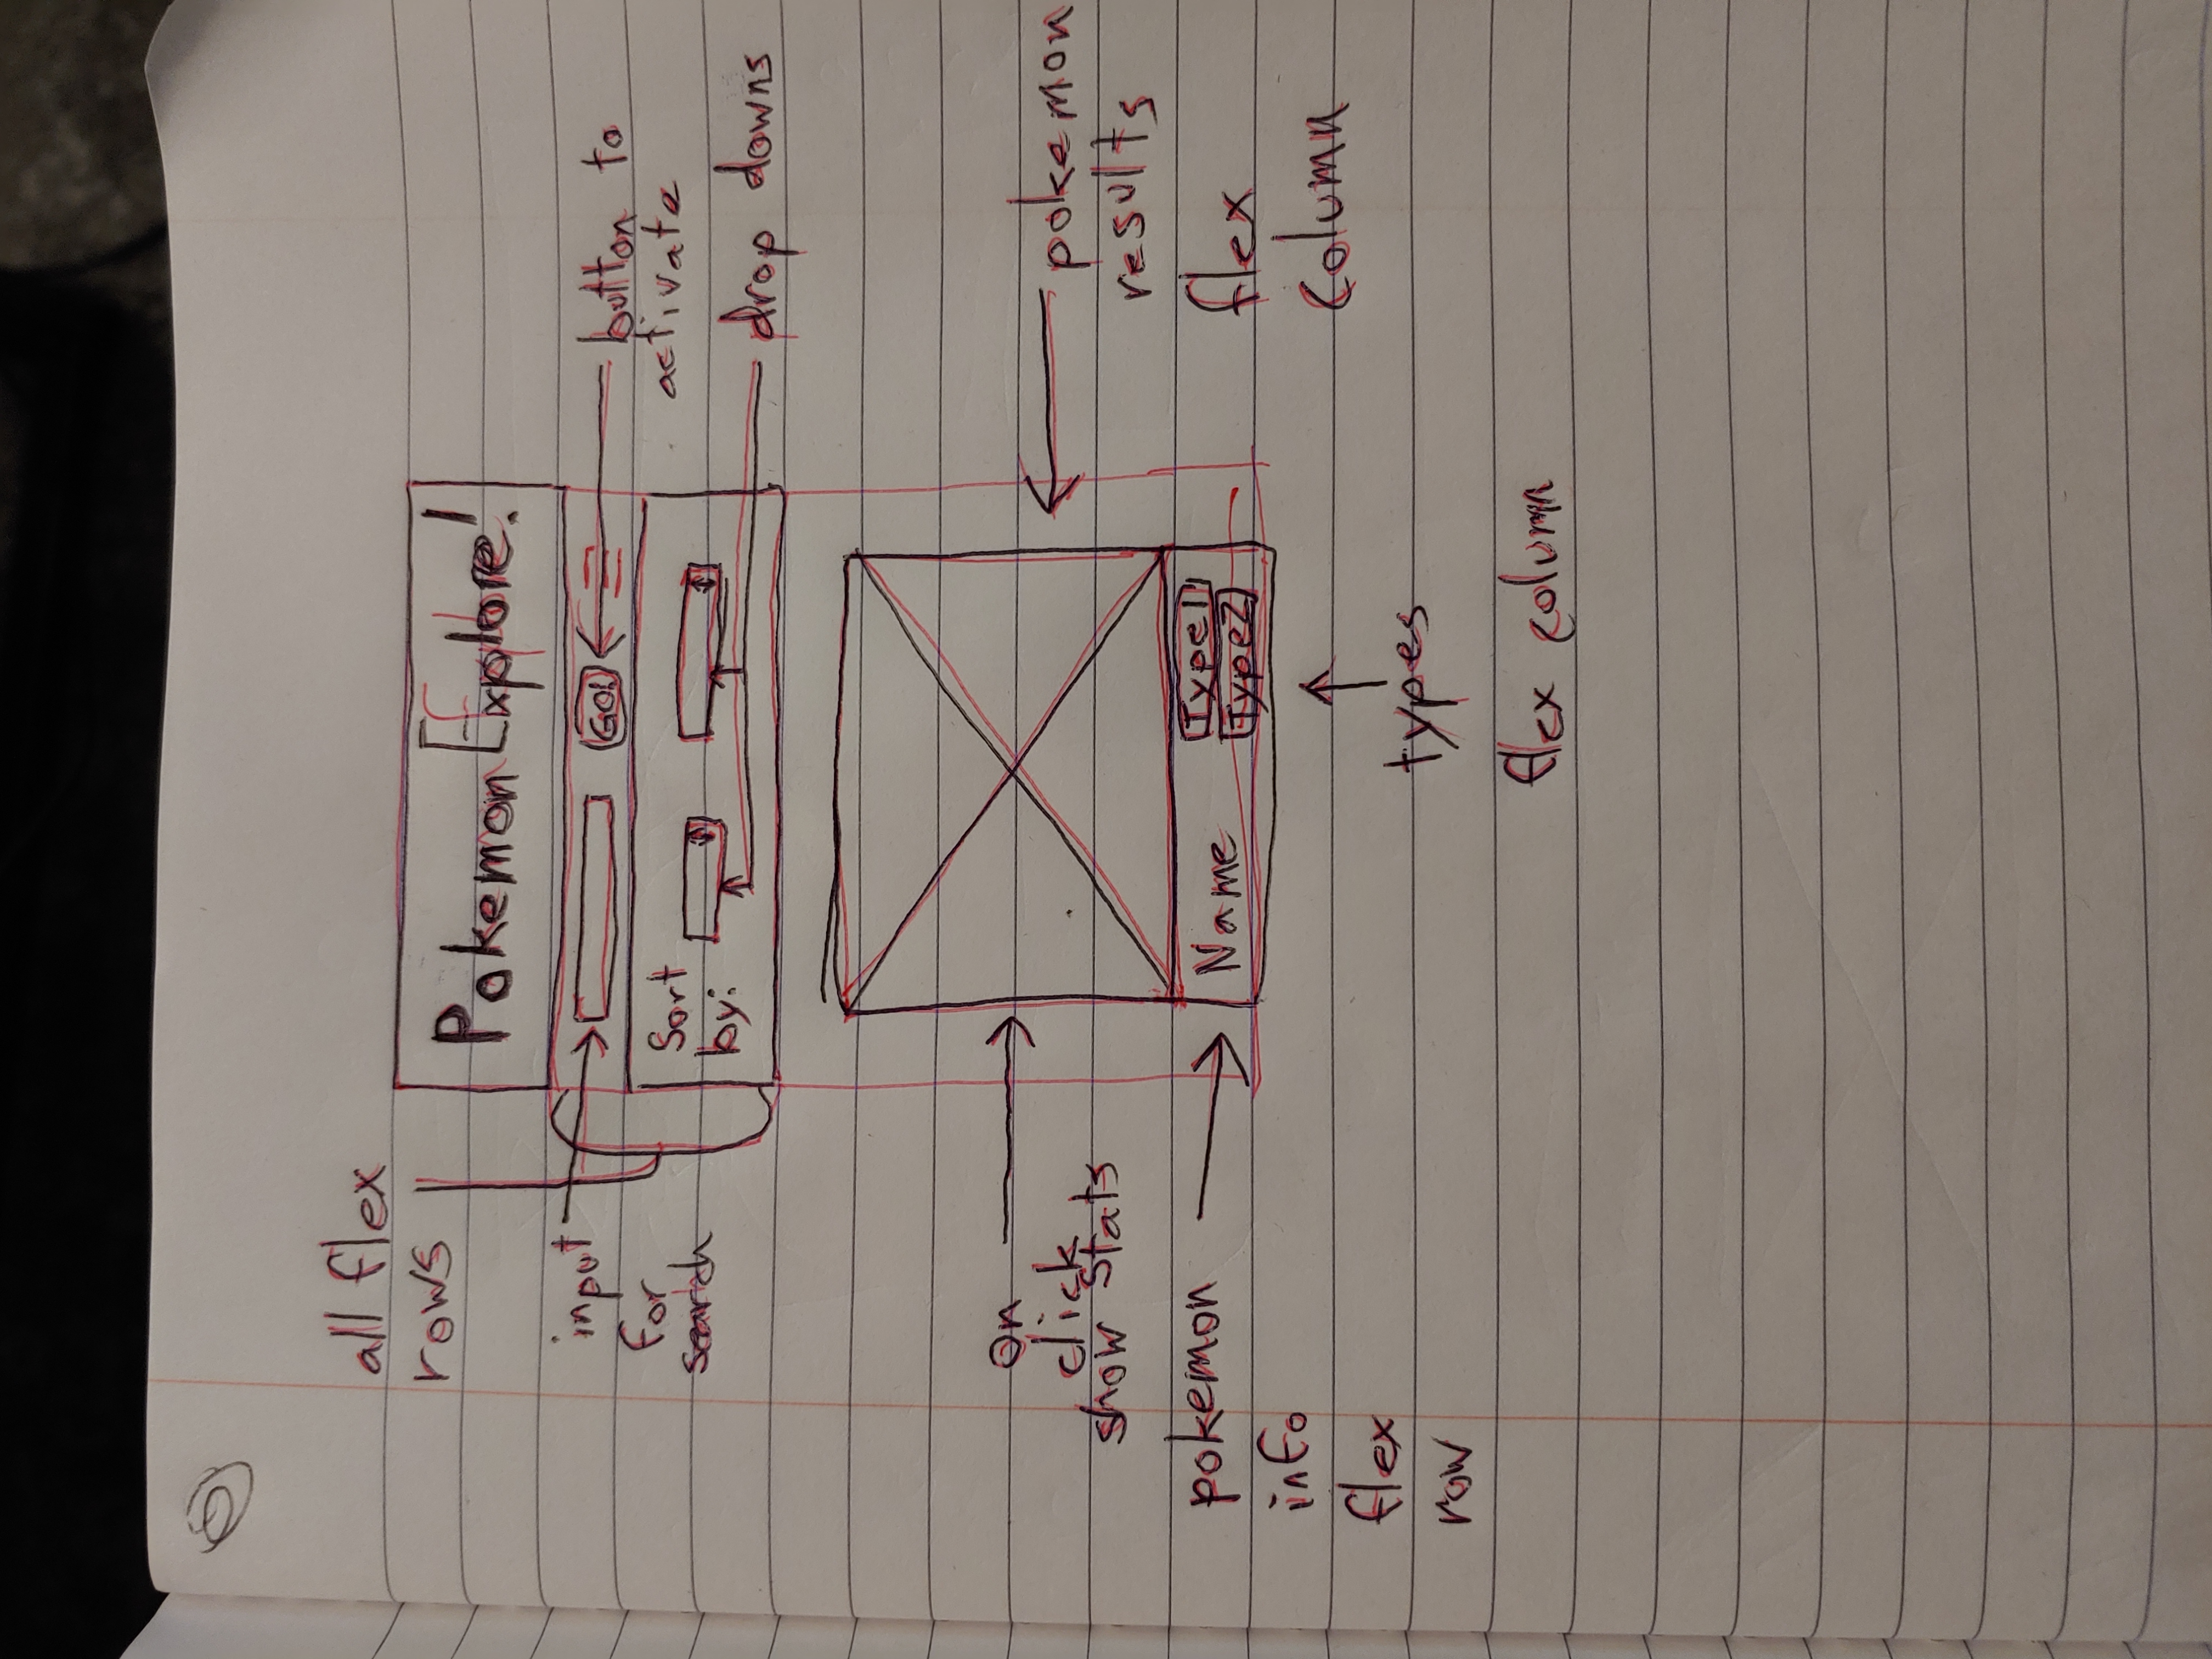 all flex
rows
Pokemon Explore!
input
for
search
GO!
button to
activate
Sort
by:
drop downs
on
click
show stats
pokemon
results
flex
column
pokemon
info
flex
row
Name
Type1
Type2
types
flex column